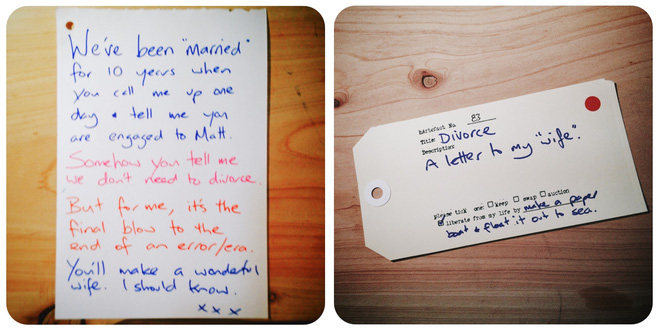 We've been "married"
for 10 years when
you call me up one
day & tell me you
are engaged to Matt.
Somehow you tell me
we don't need to divorce.
But for me, it's the
final blow to the
end of an error/era.
You'll make a wonderful
wife. I should know.
x x x
hArtefact No. 83
Title: Divorce
Description:
A letter to my "wife".
please tick one: keep swap auction
liberate from my life by make a paper
boat & float it out to sea.